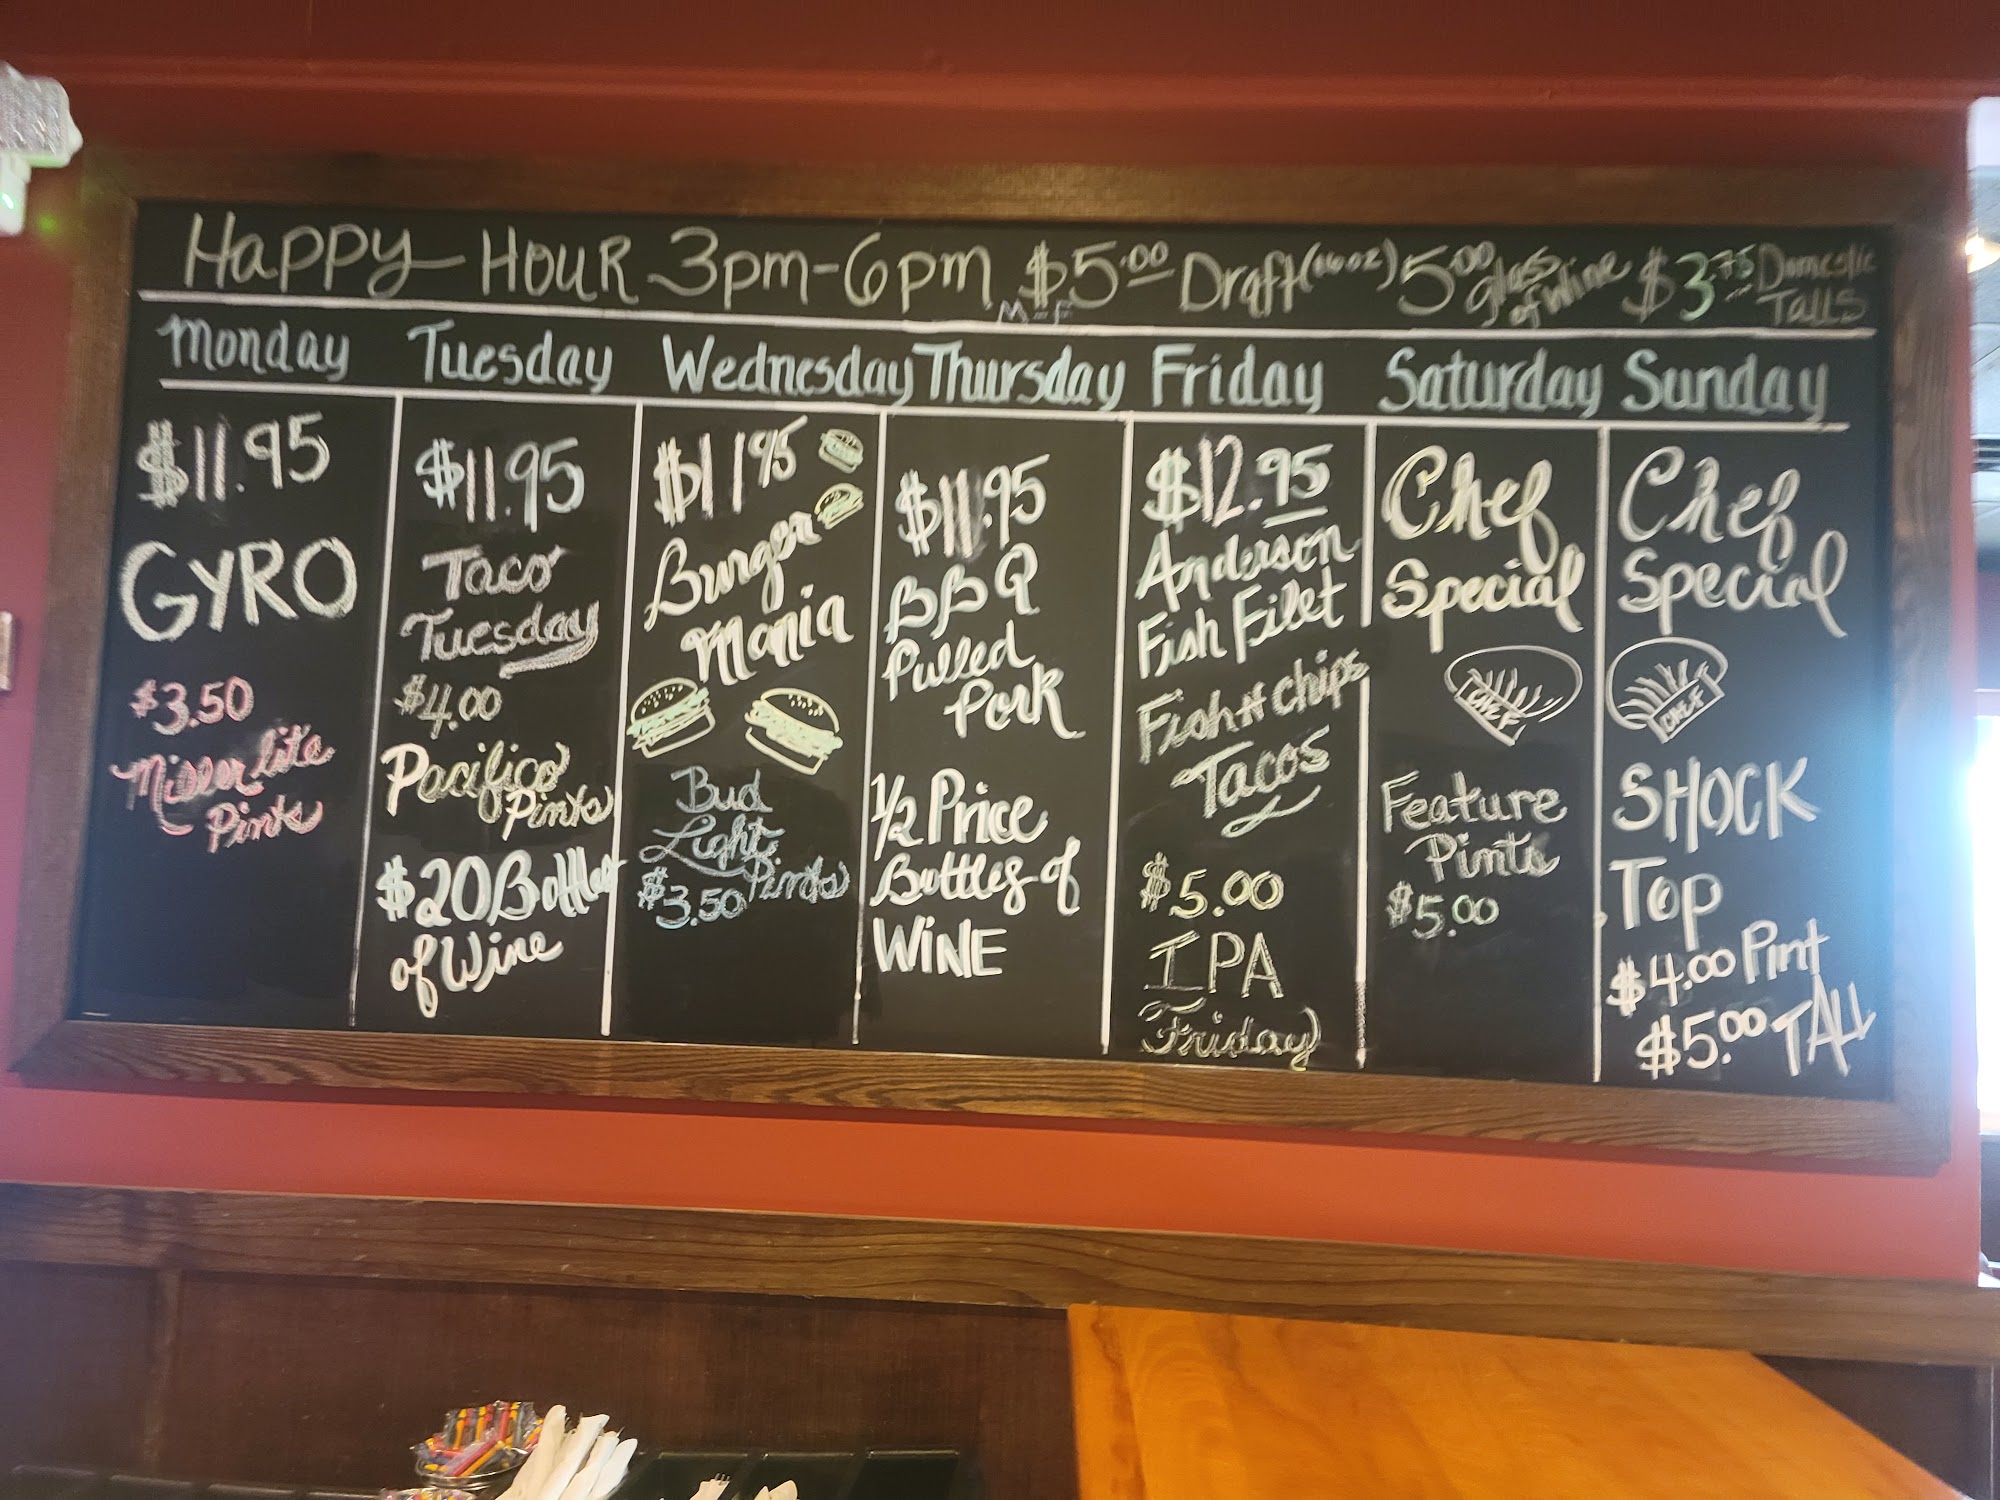 Happy Hour 3pm-6pm $5.00 Draft (16oz) 5.00 glass of Wine $3.75 Domestic Talls
M-F
Monday Tuesday Wednesday Thursday Friday Saturday Sunday
$11.95
GYRO
$3.50
Miller lite
Pints
$11.95
Taco
Tuesday
$4.00
Pacifico
Pints
$20 Bottles
of Wine
$11.95
Burger
Mania
Bud
Light
Pints
$3.50
$11.95
BBQ
Pulled
Pork
1/2 Price
Bottles of
WINE
$12.95
Anderson
Fish Filet
Fish + chips
Tacos
$5.00
IPA
Friday
Chef
Special
CHEF
Feature
Pints
$5.00
Chef
Special
CHEF
SHOCK
TOP
$4.00 Pint
$5.00 TALL